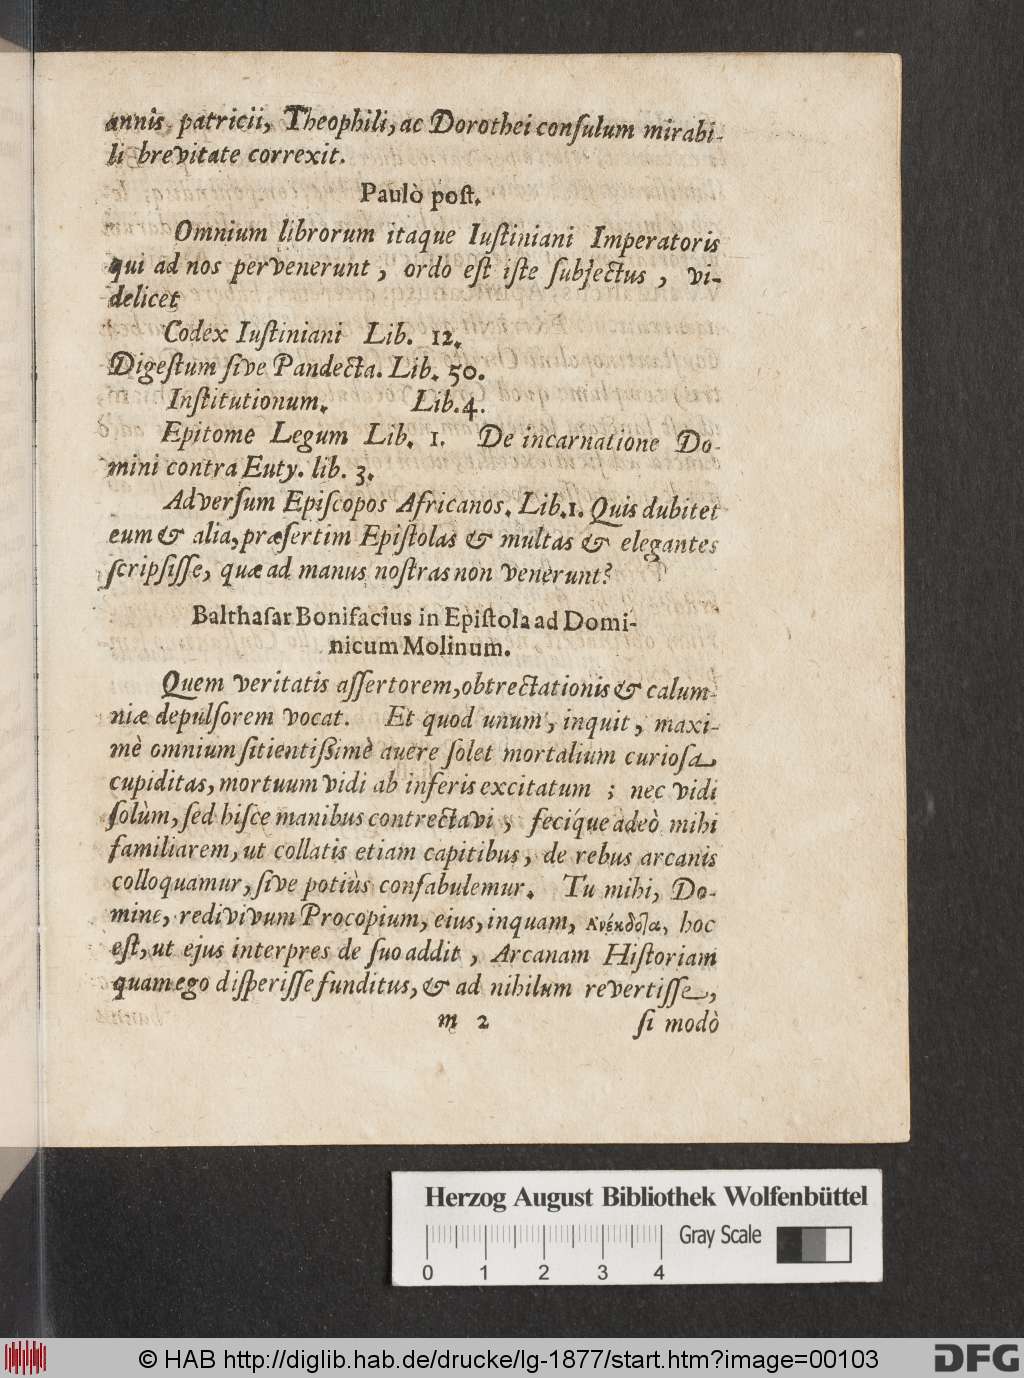 annis, patricii, Theophili, ac Dorothei consulum mirabi-
li brevitate correxit.
Paulò post.
Omnium librorum itaque Iustiniani Imperatoris
qui ad nos pervenerunt, ordo est iste subjectus, vi-
delicet
Codex Iustiniani Lib. 12.
Digestum sive Pandecta. Lib. 50.
Institutionum. Lib. 4.
Epitome Legum Lib. 1. De incarnatione Do-
mini contra Euty. lib. 3.
Adversum Episcopos Africanos. Lib. 1. Quis dubitet
eum & alia, præsertim Epistolas & multas & elegantes
scripsisse, quæ ad manus nostras non venerunt?
Balthasar Bonifacius in Epistola ad Domi-
nicum Molinum.
Quem veritatis assertorem, obtrectationis & calum-
niæ depulsorem vocat. Et quod unum, inquit, maxi-
mè omnium sitientißimè avere solet mortalium curiosa
cupiditas, mortuum vidi ab inferis excitatum ; nec vidi
solùm, sed hisce manibus contrectavi, fecíque adeò mihi
familiarem, ut collatis etiam capitibus, de rebus arcanis
colloquamur, sive potiùs confabulemur. Tu mihi, Do-
mine, redivivum Procopium, eius, inquam, Ανέκδοτα, hoc
est, ut ejus interpres de suo addit, Arcanam Historiam
quam ego disperisse funditus, & ad nihilum revertisse,
m 2 si modò
Herzog August Bibliothek Wolfenbüttel
Gray Scale
0 1 2 3 4
© HAB http://diglib.hab.de/drucke/lg-1877/start.htm?image=00103
DFG